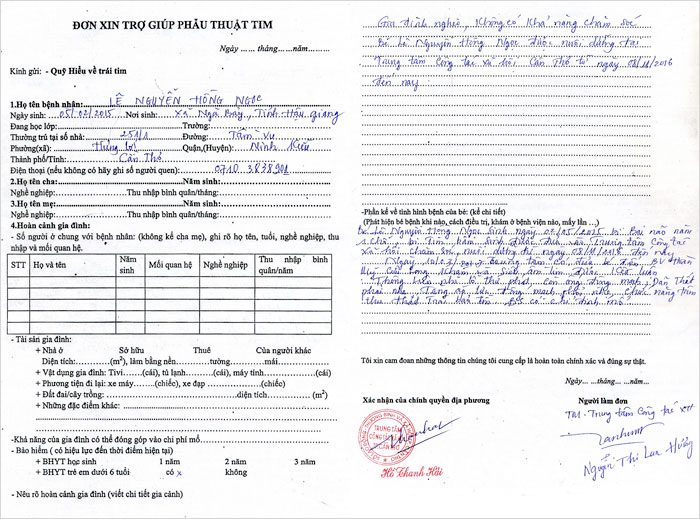 ĐƠN XIN TRỢ GIÚP PHẪU THUẬT TIM
Ngày ...... tháng....năm...........
Kính gửi: - Quỹ Hiểu về trái tim
1.Họ tên bệnh nhân: LÊ NGUYỄN HỒNG NGỌC
Ngày sinh: 05/02/2015 Nơi sinh: Xã Ngã Bảy, Tỉnh Hậu Giang
Đang học lớp: Trường:
Thường trú tại số nhà: 251/1 Đường: Tầm Vu
Phường(xã): Hưng Lợi Quận,(Huyện): Ninh Kiều
Thành phố/Tỉnh: Cần Thơ
Điện thoại (nếu không có hãy ghi số người quen): 0710 3838901
2.Họ tên cha: Năm sinh:
Nghề nghiệp: Thu nhập bình quân/tháng:
3.Họ tên mẹ: Năm sinh:
Nghề nghiệp: Thu nhập bình quân/tháng:
4.Hoàn cảnh gia đình:
- Số người ở chung với bệnh nhân: (không kể cha mẹ), ghi rõ họ tên, tuổi, nghề nghiệp, thu
nhập và mối quan hệ.
STT Họ và tên Năm sinh Mối quan hệ Nghề nghiệp Thu nhập bình quân/năm
- Tài sản gia đình:
+ Nhà ở Sở hữu Thuê Của người khác
Diện tích:.......(m²), làm bằng nền:.........tường;.........mái...........
+ Vật dụng gia đình: Tivi.......(cái), tủ lạnh.......(cái), máy tính.......(cái)
+ Phương tiện đi lại: xe máy.......(chiếc), xe đạp .......(chiếc)
+ Đất đai/cây trồng:.......diện tích ....... (m²)
+ Những đặc điểm khác:
-Khả năng của gia đình có thể đóng góp vào chi phí mổ
- Bảo hiểm ( có hiệu lực đến thời điểm hiện tại)
+ BHYT học sinh 1 năm 2 năm 3 năm
+ BHYT trẻ em dưới 6 tuổi có x không
- Nêu rõ hoàn cảnh gia đình (viết chi tiết gia cảnh)
Gia đình nghèo, không có khả năng chăm sóc
Bé Lê Nguyễn Hồng Ngọc được nuôi dưỡng tại
Trung tâm Công tác xã hội Cần Thơ từ ngày 08/11/2016
đến nay
-Phần kể về tình hình bệnh của bé: (kể chi tiết)
(Phát hiện bé bệnh khi nào, cách điều trị, khám ở bệnh viện nào, mấy lần ...)
Bé Lê Nguyễn Hồng Ngọc sinh ngày 05/02/2015 bị Bại não nằm
1 chỗ, bị Tim bẩm sinh được đưa về Trung tâm Công tác
xã hội chăm sóc, nuôi dưỡng từ ngày 08/11/2016 đến nay
Trung tâm có đưa bé đến BV Hoàn
Mỹ Cửu Long khám và siêu âm tim được kết luận
Thông liên nhĩ lỗ thứ phát, Còn ống động mạch, Dãn thất
phải nhẹ, Tăng áp lực động mạch phổi nhẹ, chức năng tâm
thu thất trái bảo tồn. BS có chỉ định mổ
Tôi xin cam đoan những thông tin chúng tôi cung cấp là hoàn toàn chính xác và đúng sự thật.
Ngày.... tháng... năm...
Xác nhận của chính quyền địa phương Người làm đơn
TM. Trung tâm Công tác XH
TRUNG TÂM
CÔNG TÁC XÃ HỘI
TP CẦN THƠ
Hồ Chanh Hải
Nguyễn Thị Lan Hương